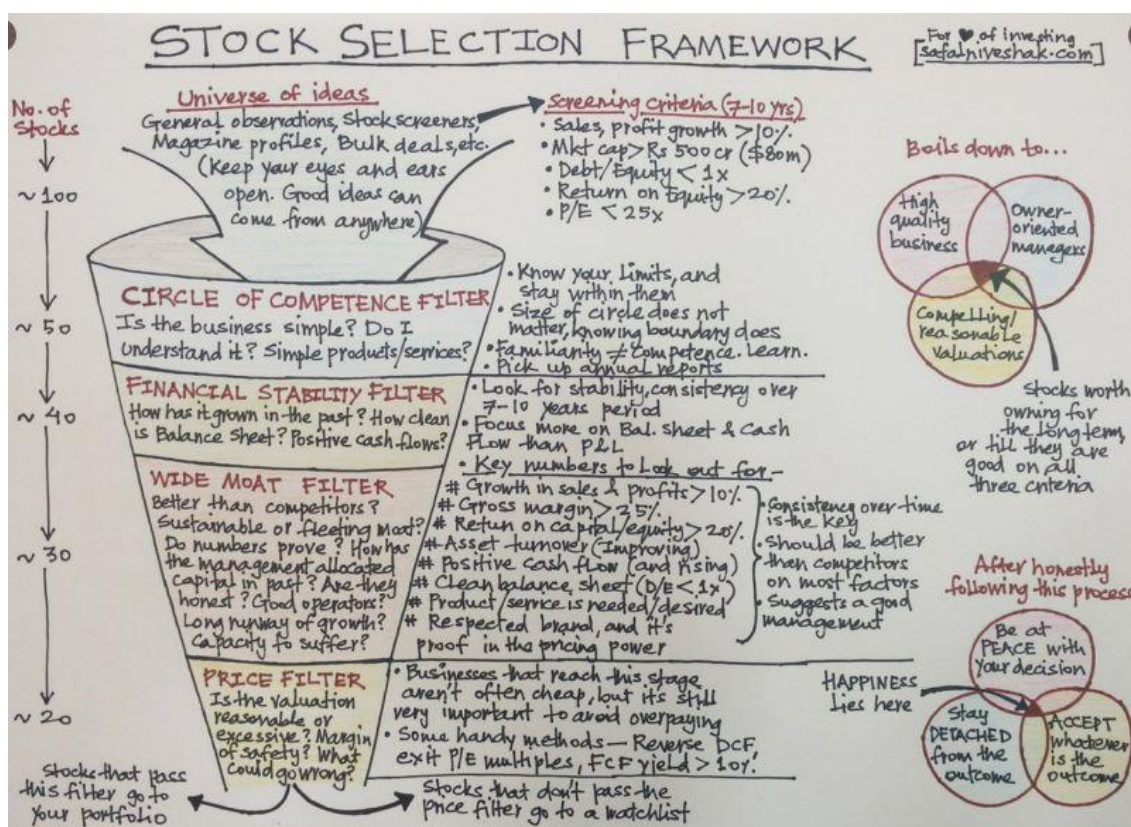 STOCK SELECTION FRAMEWORK
For ♥ of investing
[safalniveshak.com]
No. of
Stocks
~ 100
~ 50
~ 40
~ 30
~ 20
Universe of ideas
General observations, Stock screeners,
Magazine profiles, Bulk deals, etc.
(Keep your eyes and ears
open. Good ideas can
come from anywhere)
Screening criteria (7-10 yrs)
• Sales, profit growth >10%
• Mkt cap > Rs 500 cr ($80m)
• Debt/Equity < 1x
• Return on Equity > 20%
• P/E < 25x
CIRCLE OF COMPETENCE FILTER
Is the business simple? Do I
understand it? Simple products/services?
• Know your limits, and
stay within them
• Size of circle does not
matter, knowing boundary does
• Familiarity ≠ Competence. Learn.
• Pick up annual reports
FINANCIAL STABILITY FILTER
How has it grown in the past? How clean
is Balance Sheet? Positive cash flows?
• Look for stability, consistency over
7-10 years period
• Focus more on Bal. sheet & Cash
Flow than P&L
WIDE MOAT FILTER
Better than competitors?
Sustainable or fleeting moat?
Do numbers prove? How has
the management allocated
capital in past? Are they
honest? Good operators?
Long runway of growth?
Capacity to suffer?
• Key numbers to look out for-
# Growth in sales & profits > 10%
# Gross margin > 25%
# Retun on capital/equity > 20%
# Asset turnover (Improving)
# Positive cash flow (and rising)
# Clean balance sheet (D/E < 1x)
# Product/service is needed/desired
# Respected brand, and it's
proof in the pricing power
• Consistency over time
is the key
• Should be better
than competitors
on most factors
• Suggests a good
management
PRICE FILTER
Is the valuation
reasonable or
excessive? Margin
of safety? What
could go wrong?
• Businesses that reach this stage
aren't often cheap, but it's still
very important to avoid overpaying
• Some handy methods — Reverse DCF,
exit P/E multiples, FCF yield > 10%
Stocks that pass
this filter go to
your portfolio
Stocks that don't pass the
price filter go to a watchlist
Boils down to...
High
quality
business
Owner-
oriented
managers
Compelling/
reasonable
valuations
Stocks worth
owning for
the long term,
or till they are
good on all
three criteria
After honestly
following this process
Be at
PEACE with
your decision
HAPPINESS
lies here
Stay
DETACHED
from the
outcome
ACCEPT
whatever
is the
outcome